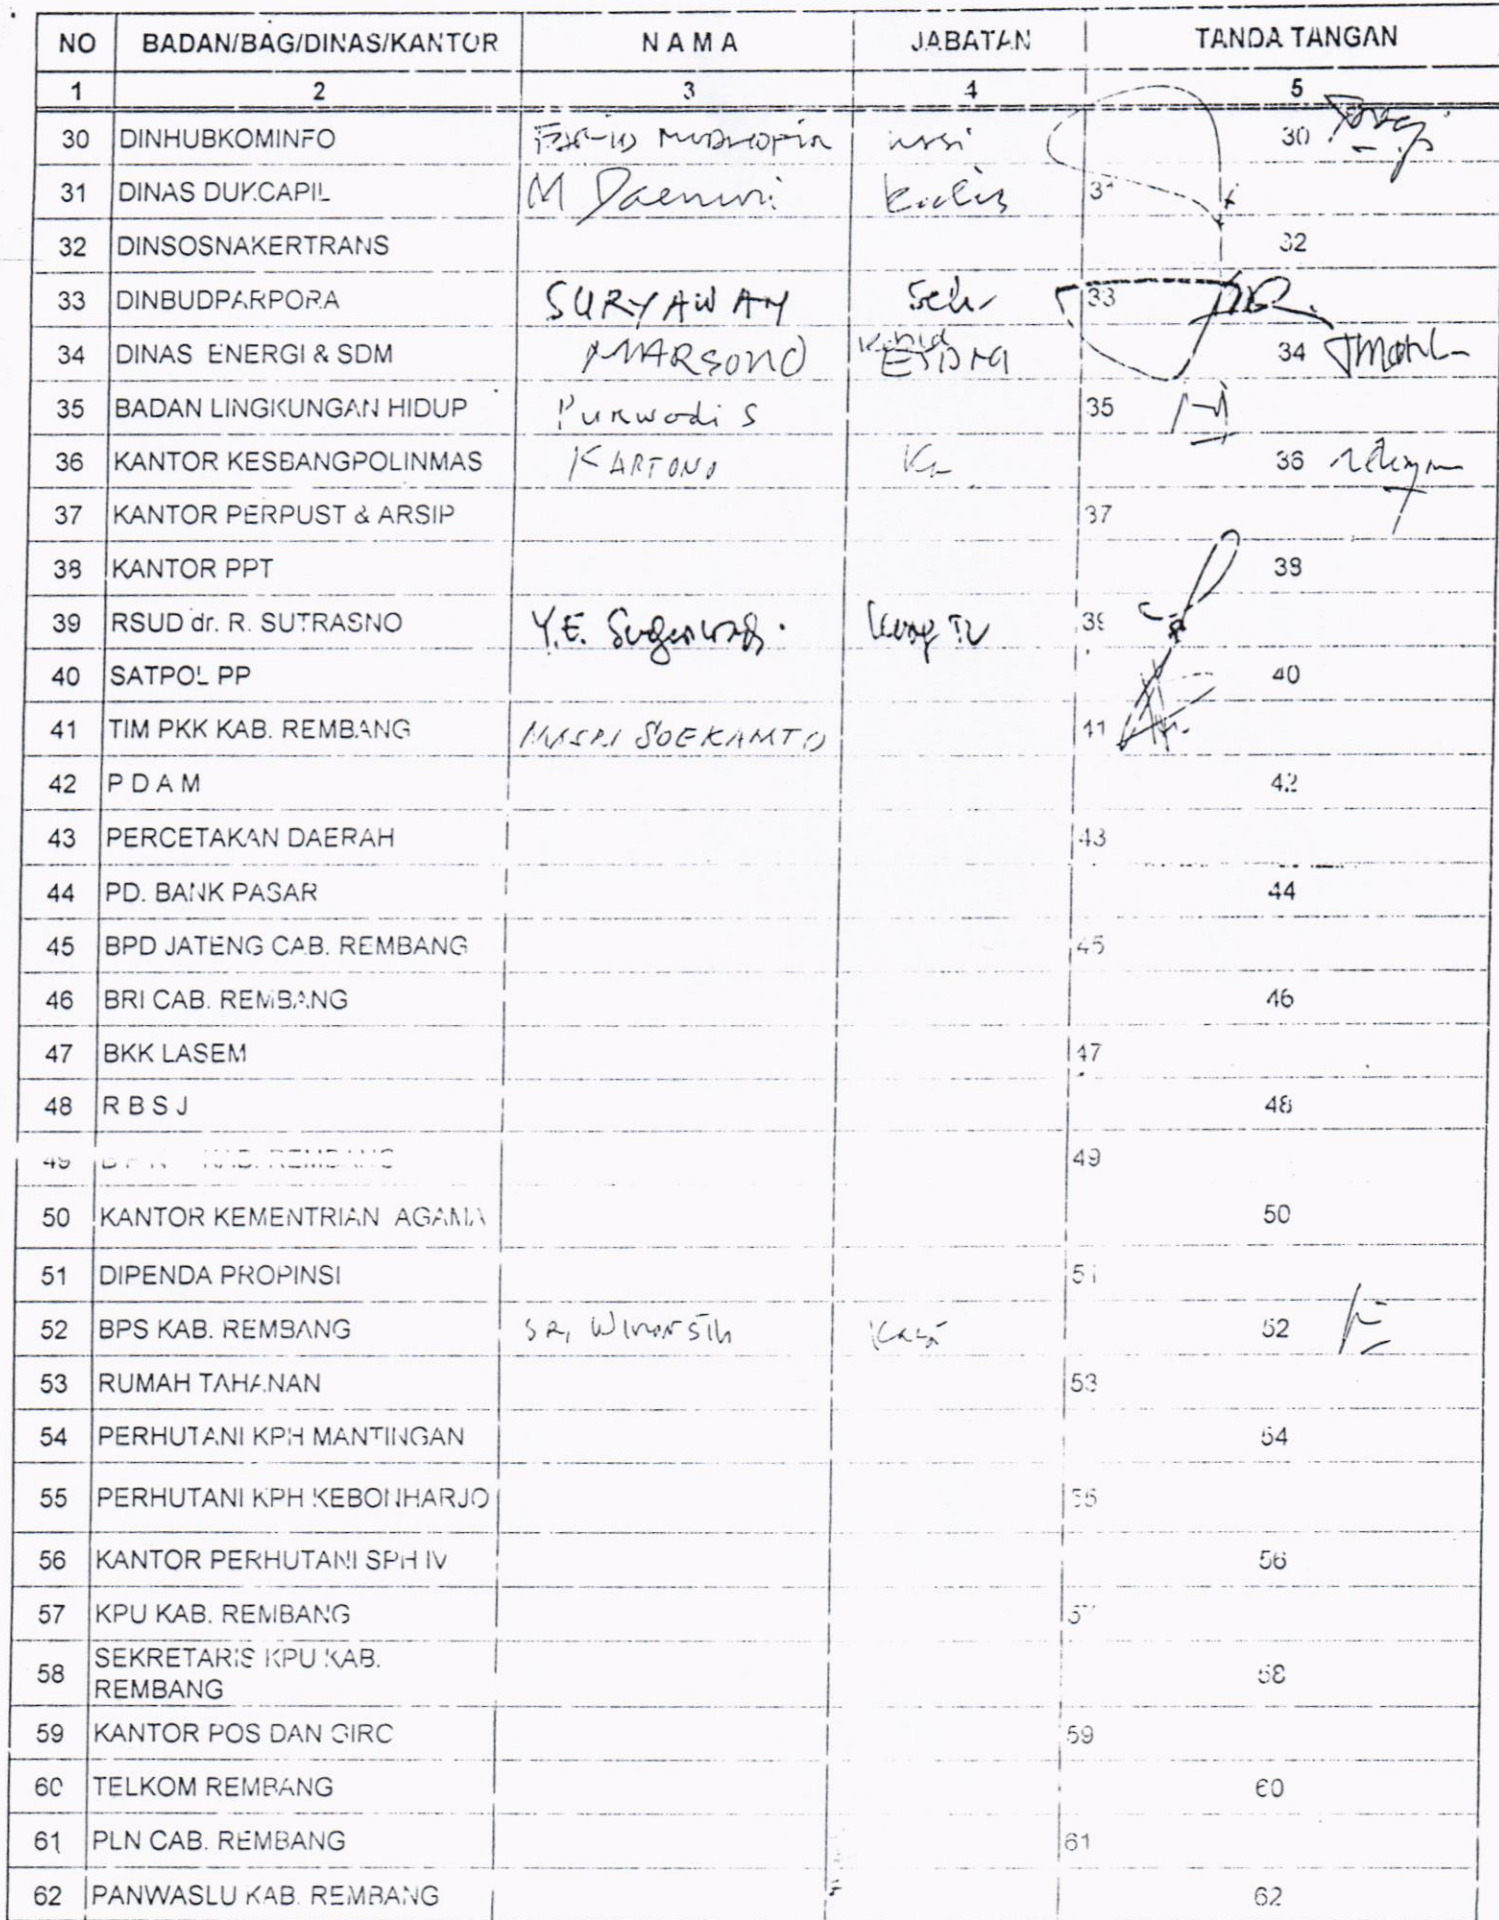 NO BADAN/BAG/DINAS/KANTOR N A M A JABATAN TANDA TANGAN
1 2 3 4 5
30 DINHUBKOMINFO 30
31 DINAS DUKCAPIL M 31
32 DINSOSNAKERTRANS 32
33 DINBUDPARPORA SURYAWAN 33
34 DINAS ENERGI & SDM MARSONO Kabid ESDM 34
35 BADAN LINGKUNGAN HIDUP Purwadi S 35
36 KANTOR KESBANGPOLINMAS KARTONO 36
37 KANTOR PERPUST & ARSIP 37
38 KANTOR PPT 38
39 RSUD dr. R. SUTRASNO Y.E. 39
40 SATPOL PP 40
41 TIM PKK KAB. REMBANG SOEKAMTO 41
42 P D A M 42
43 PERCETAKAN DAERAH 43
44 PD. BANK PASAR 44
45 BPD JATENG CAB. REMBANG 45
46 BRI CAB. REMBANG 46
47 BKK LASEM 47
48 R B S J 48
49 KAB. REMBANG 49
50 KANTOR KEMENTRIAN AGAMA 50
51 DIPENDA PROPINSI 51
52 BPS KAB. REMBANG SRI Winarsih Kasi 52
53 RUMAH TAHANAN 53
54 PERHUTANI KPH MANTINGAN 54
55 PERHUTANI KPH KEBONHARJO 55
56 KANTOR PERHUTANI SPH IV 56
57 KPU KAB. REMBANG 57
58 SEKRETARIS KPU KAB. 58
REMBANG
59 KANTOR POS DAN GIRO 59
60 TELKOM REMBANG 60
61 PLN CAB. REMBANG 61
62 PANWASLU KAB. REMBANG 62